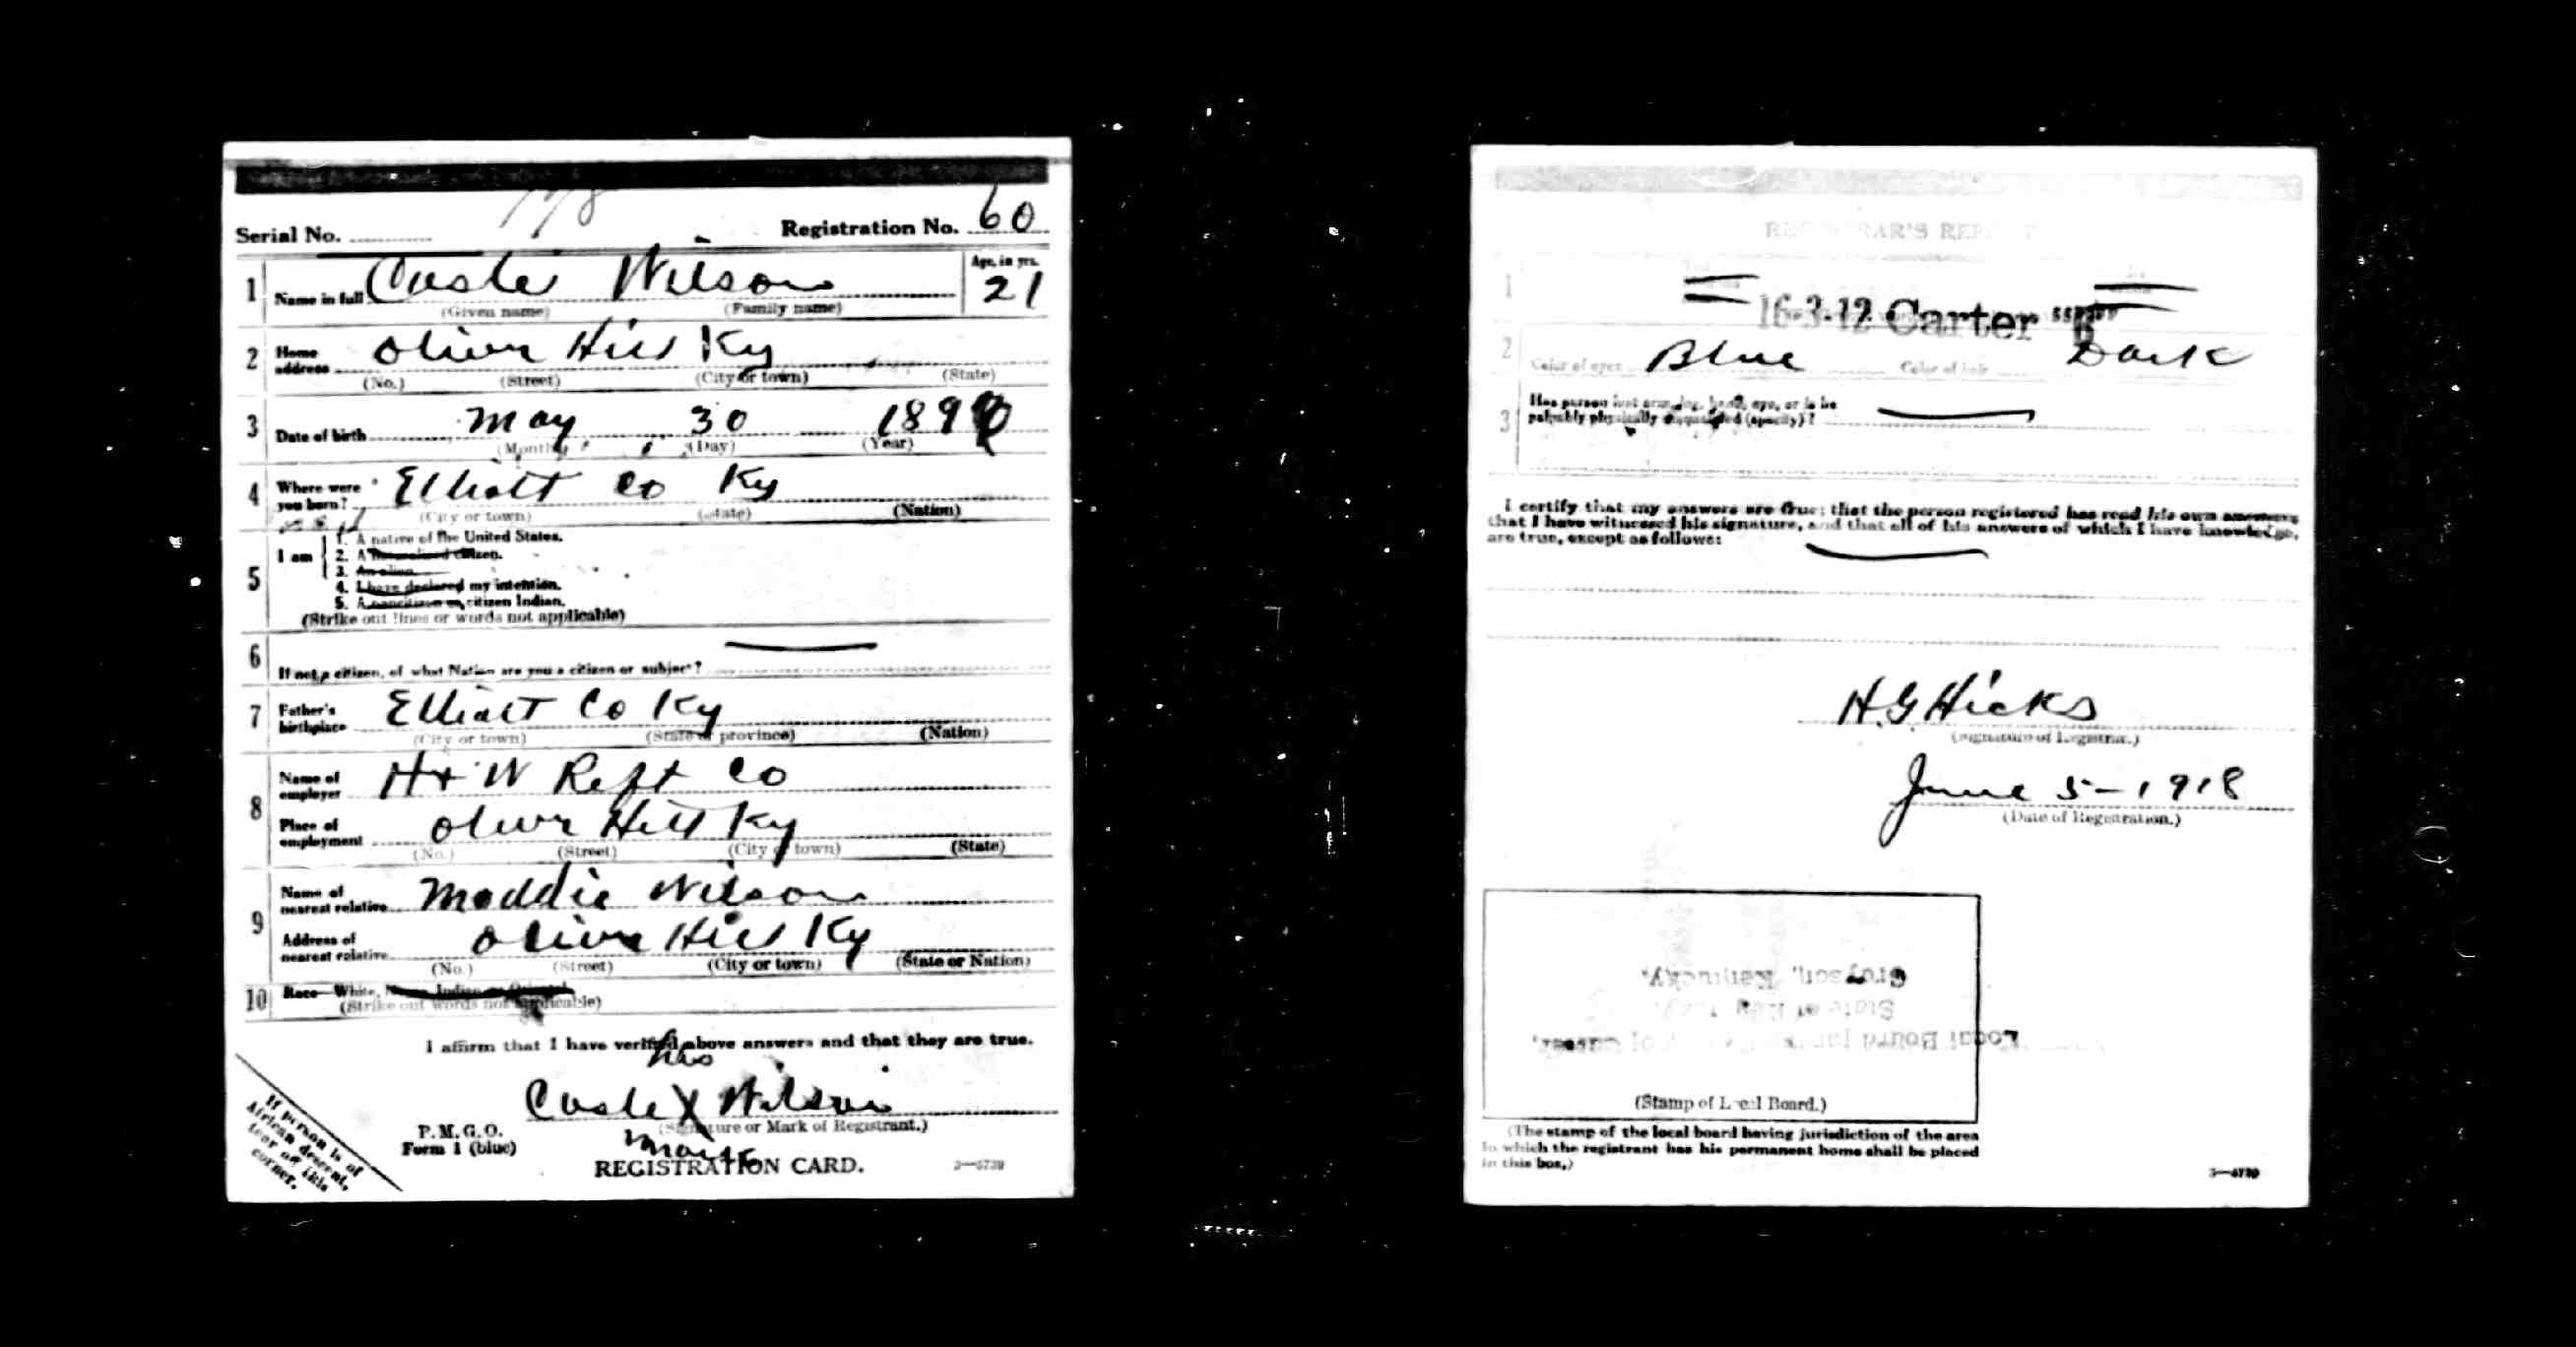 Serial No.
Registration No. 60
1 Name in full Wilson
Age, in yrs. 21
(Given name) (Family name)
2 Home address Olive Hill Ky
(No.) (Street) (City or town) (State)
3 Date of birth May 30 189
(Month) (Day) (Year)
4 Where were you born? Elliott Co Ky
(City or town) (State) (Nation)
5 I am
1. A native of the United States.
2. A naturalized citizen.
3. An alien.
4. I have declared my intention.
5. A noncitizen or citizen Indian.
(Strike out lines or words not applicable)
6 If not a citizen, of what Nation are you a citizen or subject?
7 Father's birthplace Elliott Co Ky
(City or town) (State or province) (Nation)
8 Name of employer H + W Reft Co
Place of employment Olive Hill Ky
(No.) (Street) (City or town) (State)
9 Name of nearest relative Maddie Wilson
Address of nearest relative Olive Hill Ky
(No.) (Street) (City or town) (State or Nation)
10 Race—White, Negro, Indian or Oriental
(Strike out words not applicable)
I affirm that I have verified above answers and that they are true.
his
X Wilson
(Signature or Mark of Registrant.)
mark
P.M.G.O.
Form 1 (blue)
REGISTRATION CARD.
If person is of
African descent,
tear off this
corner.
REGISTRAR'S REPORT
16-3-12 Carter
1
2 Color of eyes Blue Color of hair Dark
3 Has person lost arm, leg, hand, eye, or is he
palpably physically disqualified (specify)?
I certify that my answers are true; that the person registered has read his own answers,
that I have witnessed his signature, and that all of his answers of which I have knowledge,
are true, except as follows:
H. G Hicks
(Signature of Registrar.)
June 5 - 1918
(Date of Registration.)
Grayson, Kentucky.
State of Kentucky.
Local Board
(Stamp of Local Board.)
(The stamp of the local board having jurisdiction of the area
in which the registrant has his permanent home shall be placed
in this box.)